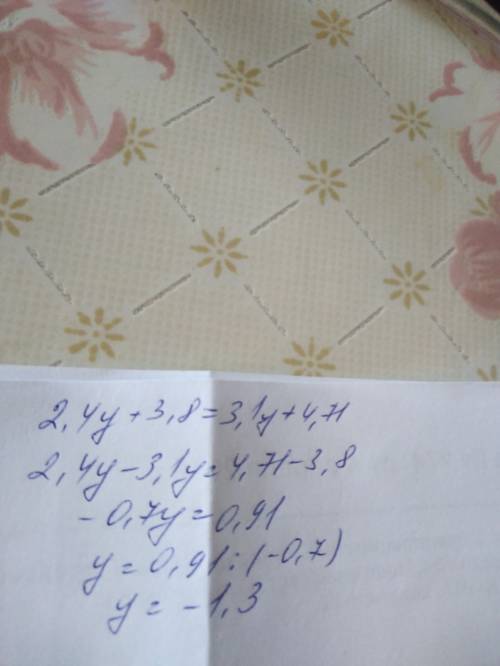 2,4y+3,8=3,1y+4,71
2,4y-3,1y=4,71-3,8
-0,7y=0,91
y=0,91:(-0,7)
y=-1,3